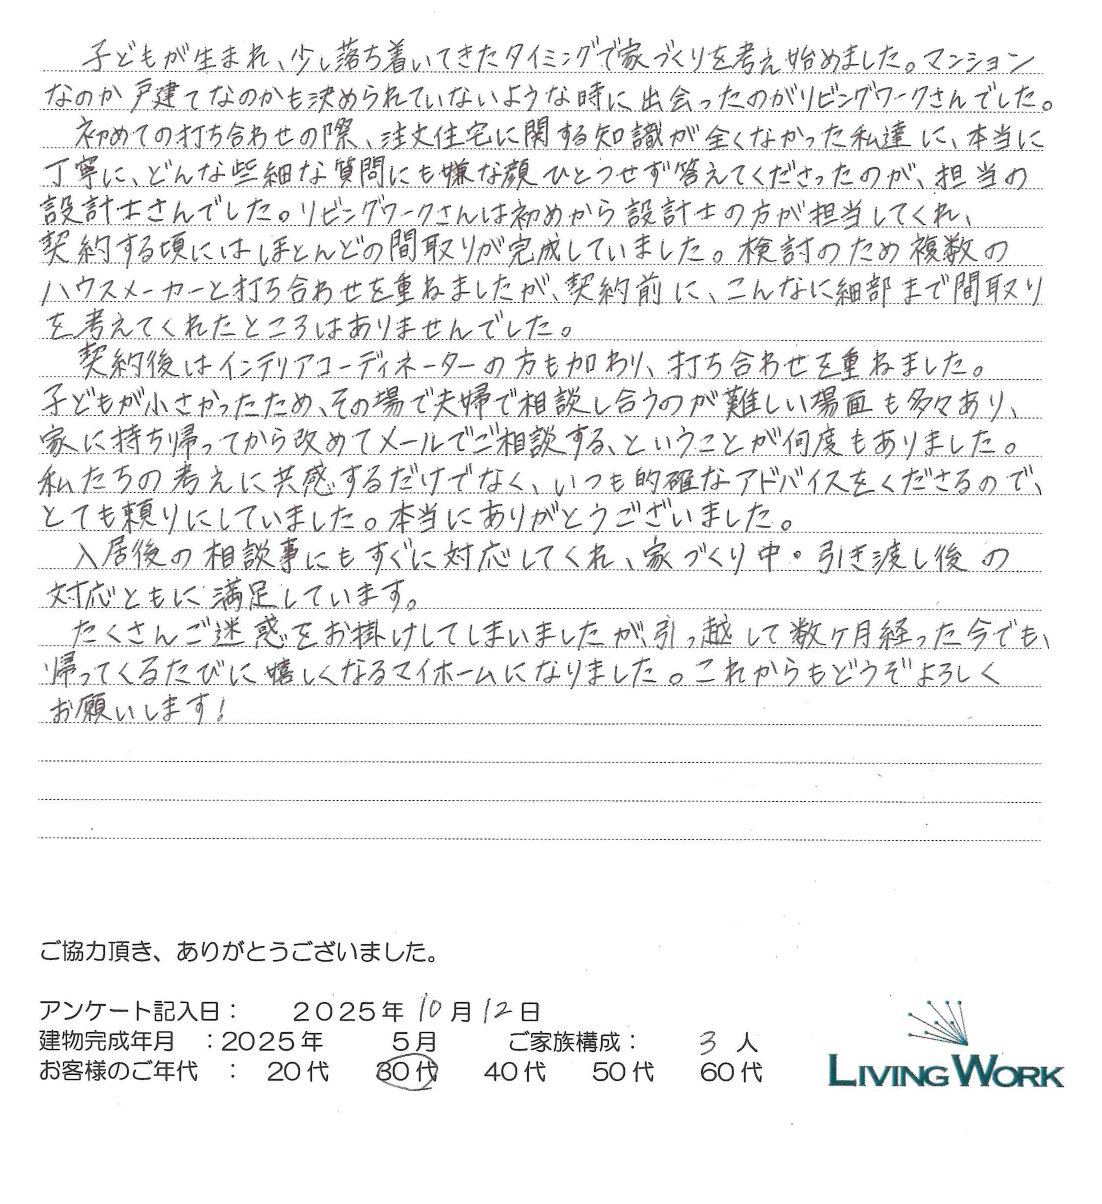 子どもが生まれ、少し落ち着いてきたタイミングで家づくりを考え始めました。マンション
なのか戸建てなのかも決められていないような時に出会ったのがリビングワークさんでした。
初めての打ち合わせの際、注文住宅に関する知識が全くなかった私達に、本当に
丁寧に、どんな些細な質問にも嫌な顔ひとつせず答えてくださったのが、担当の
設計士さんでした。リビングワークさんは初めから設計士の方が担当してくれ、
契約する頃にはほとんどの間取りが完成していました。検討のため複数の
ハウスメーカーと打ち合わせを重ねましたが、契約前に、こんなに細部まで間取り
を考えてくれたところはありませんでした。
契約後はインテリアコーディネーターの方も加わり、打ち合わせを重ねました。
子どもが小さかったため、その場で夫婦で相談し合うのが難しい場面も多々あり、
家に持ち帰ってから改めてメールでご相談する、ということが何度もありました。
私たちの考えに共感するだけでなく、いつも的確なアドバイスをくださるので、
とても頼りにしていました。本当にありがとうございました。
入居後の相談事にもすぐに対応してくれ、家づくり中・引き渡し後の
対応ともに満足しています。
たくさんご迷惑をお掛けしてしまいましたが引っ越して数ヶ月経った今でも、
帰ってくるたびに嬉しくなるマイホームになりました。これからもどうぞよろしく
お願いします!
ご協力頂き、ありがとうございました。
アンケート記入日: 2025年 10月 12日
建物完成年月 :2025年 5月 ご家族構成: 3 人
お客様のご年代 : 20代 30代 40代 50代 60代
LIVING WORK